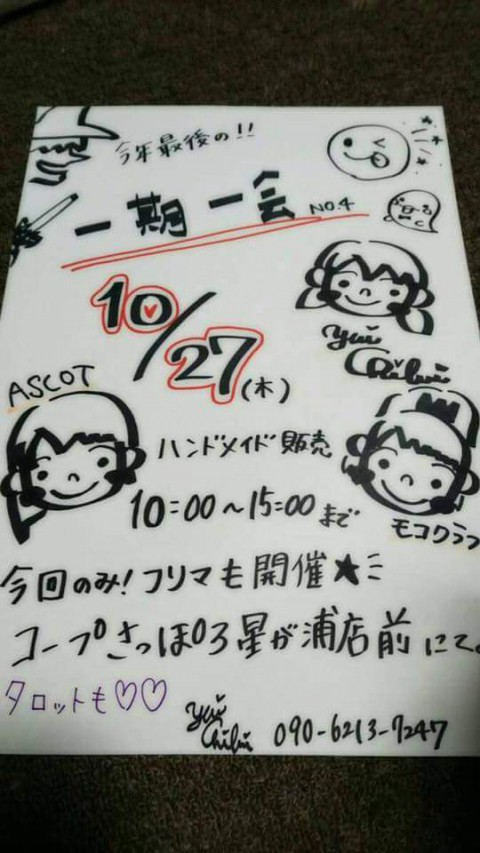 今年最後の!!
一期一会 NO.4
10/27(木)
yui
Chibi
ASCOT
ハンドメイド販売
10:00〜15:00まで
モコクラフ
今回のみ!フリマも開催★
コープさっぽろ星が浦店前にて。
タロットも♡♡
yui
Chibi 090-6213-7247